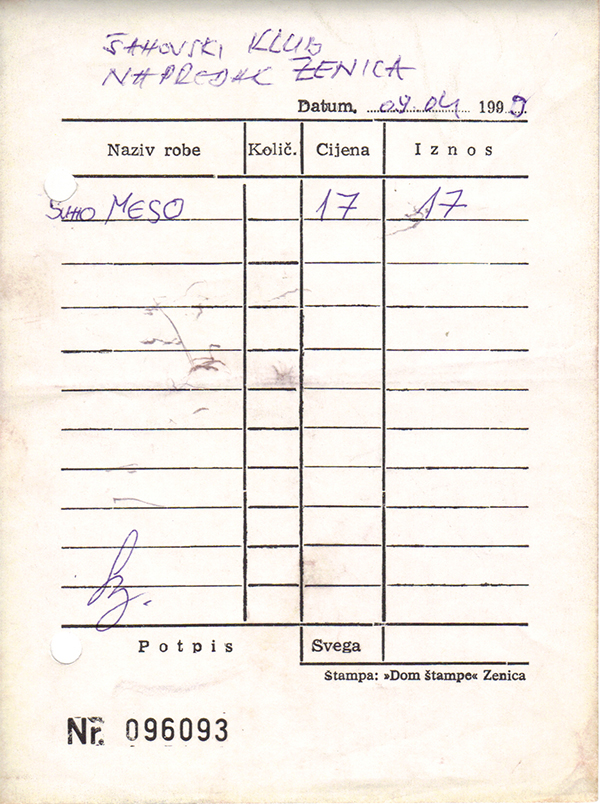 ŠAHOVSKI KLUB
NAPREDAK ZENICA
Datum, 09 04 1999.
Naziv robe Količ. Cijena Iznos
SUHO MESO 17 17
Potpis Svega
Štampa: »Dom štampe« Zenica
Nr. 096093